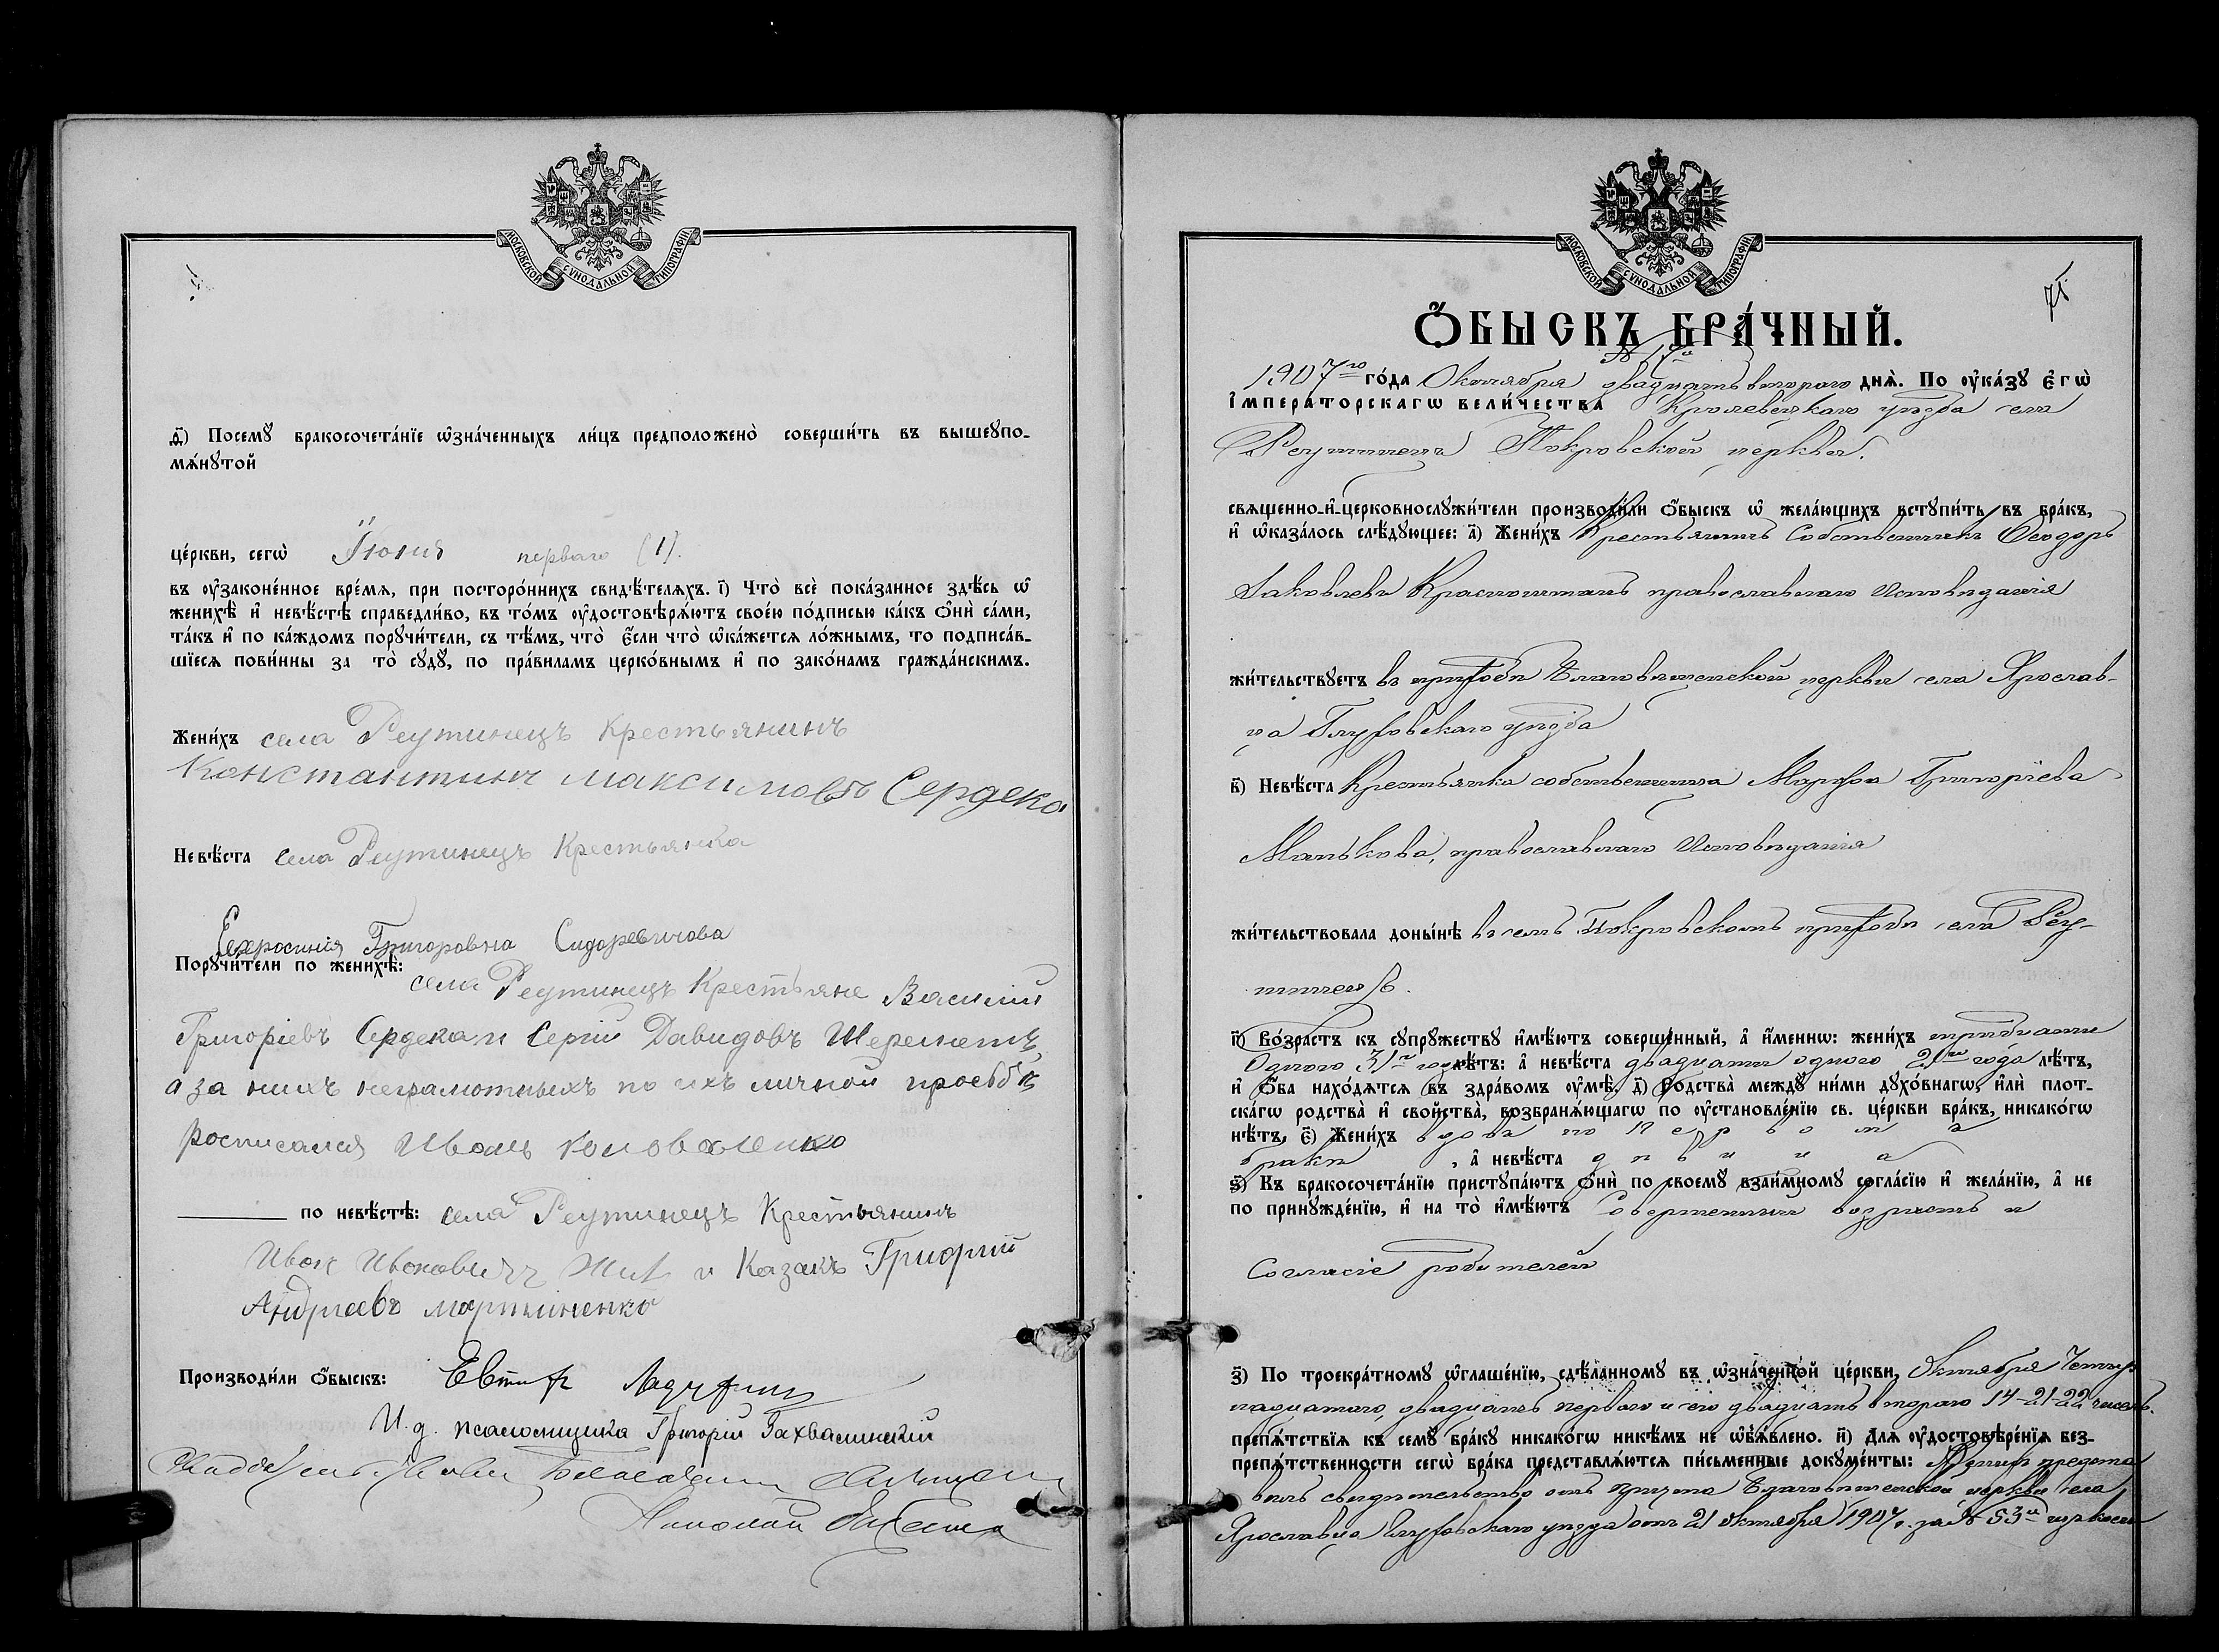 МОСКОВСКОЙ СѴНОДАЛЬНОЙ ТИПОГРАФІИ
д҃) Посемꙋ̀ бракосочета́нїе ѡ҆зна́ченныхъ ли́цъ предположено̀ соверши́ть въ вышеꙋпо-
мѧ́нꙋтой
це́ркви, сегѡ̀ Іюня перваго (1).
въ ᲂу҆законе́нное вре́мѧ, при посторо́ннихъ свидѣ́телѧхъ. і҃) Что̀ всѐ пока́занное здѣ́сь ѡ҆
женихѣ̀ и҆ невѣ́стѣ справедли́во, въ то́мъ ᲂу҆достовѣрѧ́ютъ свое́ю по́дписью ка́къ ѻ҆нѝ са́ми,
та́къ и҆ по ка́ждомъ порꙋчи́тели, съ тѣ́мъ, что̀ є҆́сли что̀ ѡ҆ка́жетсѧ ло́жнымъ, то подписа́в-
шїесѧ пови́нны за то̀ сꙋдꙋ̀, по пра́виламъ церко́внымъ и҆ по зако́намъ гражда́нскимъ.
Жени́хъ села Реутинецъ крестьянинъ
Константинъ Максимовъ Сердека
Невѣ́ста села Реутинецъ Крестьянка
Евфросинія Григоровна Сидоревичова
Порꙋчи́тели по женихѣ̀:
села Реутинецъ Крестьяне Василій
Григоріевъ Сердека и Сергій Давидовъ Шереметъ,
а за нихъ неграмотныхъ по ихъ личной просьбѣ
росписался Иванъ Коноваленко
по невѣ́стѣ: села Реутинецъ Крестьянинъ
Иван Иванович и Казакъ Григорій
Андреевъ Мартыненко
Производи́ли ѻ҆́быскъ:
И. д. псаломщика Григорій
Николай
МОСКОВСКОЙ СѴНОДАЛЬНОЙ ТИПОГРАФІИ
75
Ѻ҆́БЫСКЪ БРА́ЧНЫЙ.
№ 17й
1907го го́да Октября двадцать второго днѧ̀. По ᲂу҆ка́зꙋ є҆гѡ̀
і҆мпера́торскагѡ вели́чества Кролевецкаго уѣзда села
Реутинецъ Покровской церкви.
свѧщенно-и҆-церковнослꙋжи́тели производи́ли ѻ҆́быскъ ѡ҆ жела́ющихъ встꙋпи́ть въ бра́къ,
и҆ ѡ҆каза́лось слѣ́дꙋющее: а҃) Жени́хъ Крестьянинъ Собственникъ Ѳеодоръ
Іаковлевъ православнаго исповѣданія
жи́тельствꙋетъ въ приходѣ Благовѣщенской церкви села Ярослав-
ца Глуховскаго уѣзда
в҃) Невѣ́ста Крестьянка собственница Марфа Григоріева
Манькова, православнаго исповѣданія
жи́тельствовала доны́нѣ въ семъ Покровскомъ приходѣ села Реу-
тинецъ.
г҃) Во́зрастъ къ сꙋпрꙋ́жествꙋ и҆мѣ́ютъ соверше́нный, а҆ и҆́меннѡ: жени́хъ тридцати
одного 31го года лѣ́тъ: а҆ невѣ́ста двадцати одного 21го года лѣ́тъ,
и҆ ѻ҆́ба нахо́дѧтсѧ въ здра́вомъ ᲂу҆мѣ̀. д҃) Родства̀ междꙋ̀ ни́ми дꙋхо́внагѡ, и҆лѝ плот-
ска́гѡ родства̀ и҆ сво́йства̀, возбранѧ́ющагѡ по ᲂу҆становле́нїю св. це́ркви бра́къ, никако́гѡ
нѣ́тъ, є҃) Жени́хъ вдовъ по первомъ
бракѣ, а҆ невѣ́ста дѣвица
ѕ҃) Къ бракосочета́нїю пристꙋпа́ютъ ѻ҆нѝ по своемꙋ̀ взаи́мномꙋ согла́сїю и҆ жела́нїю, а҆ не
по принꙋжде́нїю, и҆ на то̀ и҆мѣ́ютъ Совершенный возрастъ и
Согласіе родителей
з҃) По троекра́тномꙋ ѡ҆глаше́нїю, сдѣ́ланномꙋ въ ѡ҆зна́ченной це́ркви, Октября Четыр-
надцатаго, двадцать перваго и сего двадцать второго 14-21-22 чиселъ.
препѧ́тствїѧ къ семꙋ̀ бра́кꙋ никако́гѡ никѣ́мъ не ѡ҆б̾ѧ́влено. и҃) Длѧ ᲂу҆достовѣре́нїѧ без-
препѧ́тственности сегѡ̀ бра́ка представлѧ́ютсѧ пи́сьменные докꙋме́нты: Женихъ предста-
вилъ свидѣтельство отъ причта Благовѣщенской церкви села
Ярославца Глуховскаго уѣзда отъ 21 октября 1907 г. за № 53й